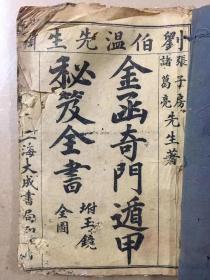 劉伯溫先生
張子房
諸葛亮
先生著
金函奇門遁甲
秘笈全書
坿玉鏡
全圖
上海大成書局印